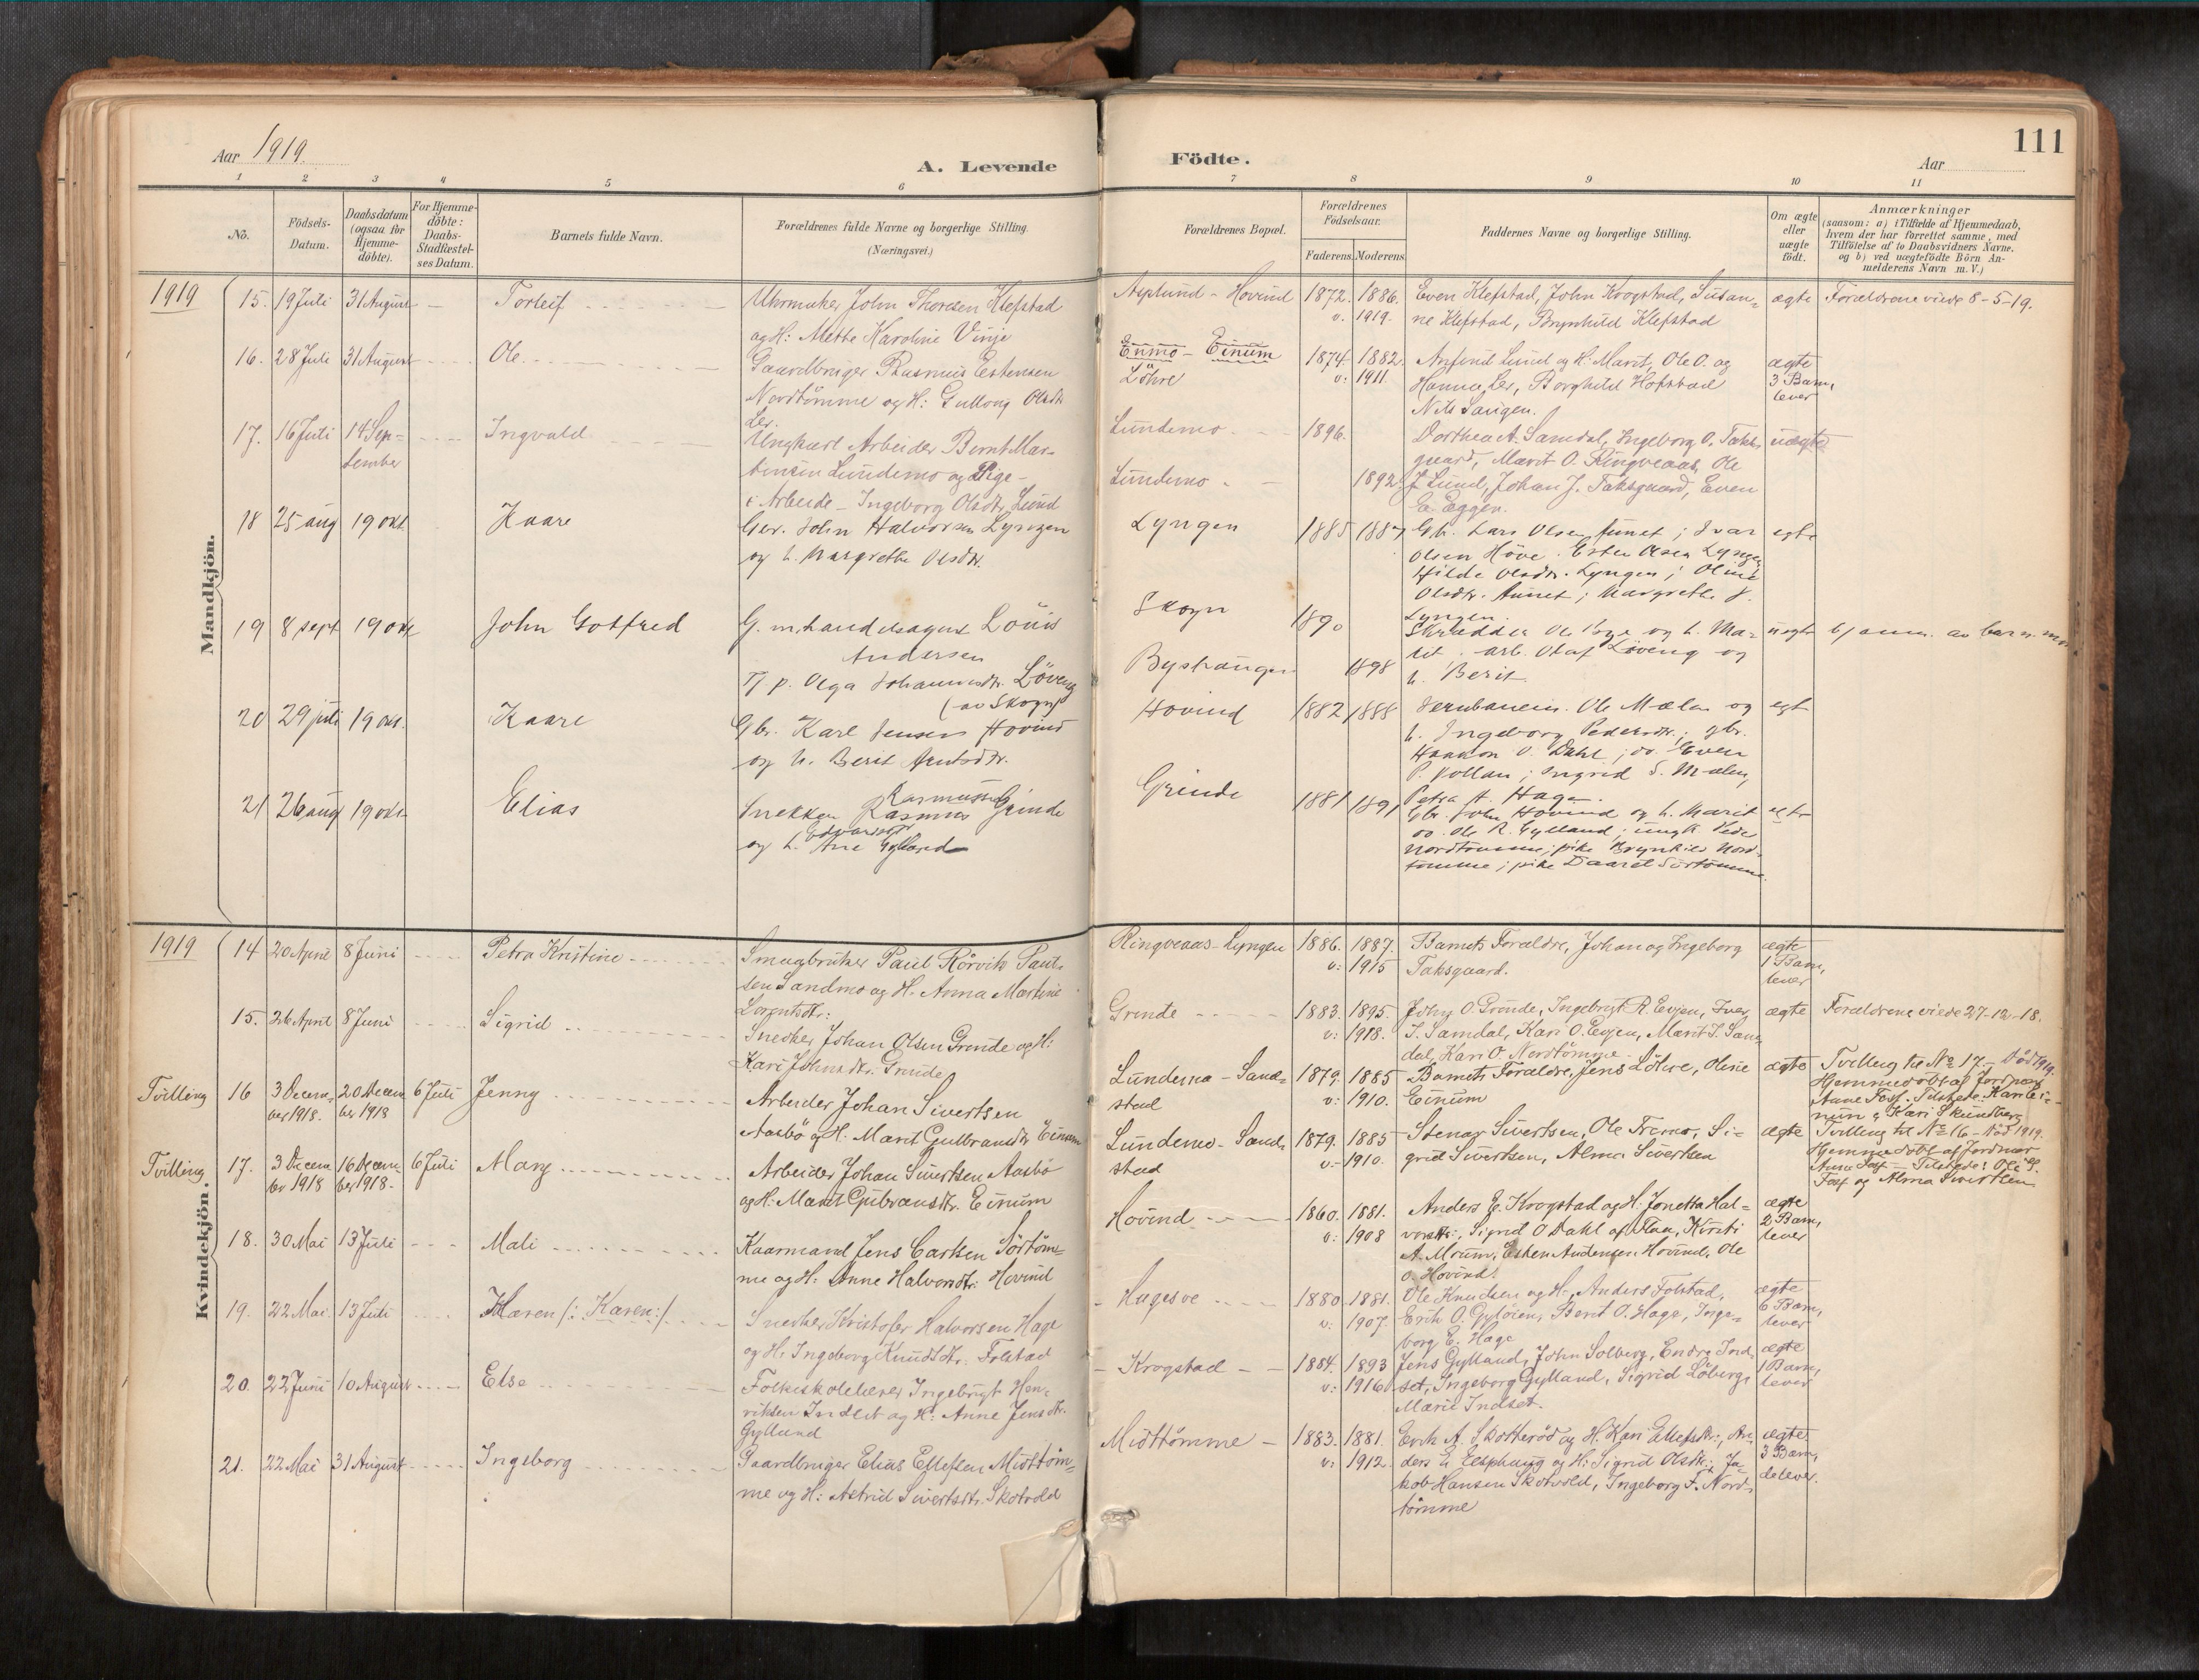 Aar 1919.
A. Levende
Födte.
Aar
111
1
2
3
4
5
6
7
8
9
10
11
No.
Födsels-
Datum.
Daabsdatum
(ogsaa for
Hjemme-
döbte).
For Hjemme-
döbte:
Daabs-
Stadfæstel-
ses Datum.
Barnets fulde Navn.
Forældrenes fulde Navne og borgerlige Stilling.
(Næringsvei.)
Forældrenes Bopæl.
Forældrenes
Födselsaar.
Faderens.
Moderens.
Faddernes Navne og borgerlige Stilling.
Om ægte
eller
uægte
födt.
Anmærkninger
(saasom: a) i Tilfælde af Hjemmedaab,
hvem der har forrettet samme, med
Tilföielse af to Daabsvidners Navne.
og b) ved uægtefödte Börn An-
melderens Navn m. V.)
Mandkjön.
1919
15. 19 Juli 31 August Torleif
Uhrmaker John Thoresen Klefstad
og H: Mette Karoline Vinje
Asplund - Hovind 1872. 1886.
v. 1919.
Even Klefstad, John Krogstad, Susan-
ne Klefstad, Brynhild Klefstad
ægte
Forældrene viede 8-5-19.
16. 28 Juli 31 August Ole
Gaardbruger Rasmus Estensen
Nordtömme og H: Gullaug Olsdtr.
Ler.
Enmo - Einum
Löhre
1874. 1882.
v: 1911.
Arnfind Lund og H: Marit, Ole O. og
Hanna Ler, Borghild Hofstad
Nils Saugen.
ægte
3 Barn,
lever
17. 16 Juli 14 Sep-
tember
Ingvald
Ungkarl Arbeider Bernt Mar-
tinsen Lundemo og Pige
i Arbeide - Ingeborg Olsdtr. Lund
Lundemo 1896.
Lundemo 1892
Dorthea A. Samdal, Ingeborg O. Taks-
gaard, Marit O. Ringveaas, Ole
J. Lund, Johan J. Taksgaard, Even
E. Eggen.
uægte
18 25 aug 19 okt. Kaare
Gbr. John Halvorsen Lyngen
og h. Margrethe Olsdtr.
Lyngen 1885 1887
Gb. Lars Olsen Aunet; Ivar
Olsen Hove. Esten Olsen Lyngen
Hilde Olsdtr. Lyngen; Oline
Olsdtr. Aunet; Margrethe J.
Lyngen.
egte
19 8 sept 19 okt John Gotfred
G. m. handelsagent Louis
Andersen
Tj. p. Olga Johannesdtr. Löveng
(av Skogn)
Skogn 1890
Bystrangen 1898
Skrædder Ole Bye og h. Ma-
rit. arb. Olaf Löveng og
h. Berit.
uegte
b) anm. av barn. mor
20 29 juli 19 okt. Kaare
Gbr. Karl Jensen Hovind
og h. Berit Arntsdtr.
Hovind 1882 1888
Jernbanem. Ole Mælen og
h. Ingeborg Pedersdtr.; gbr.
Haakon O. Dahl; do. Even
P. Kollan; Ingrid S. Mælen,
Petra A. Hage.
egte
21 26 aug 19 okt. Elias
Snekker Rasmus Rasmussen Grinde
og h. Ane Edvardsdtr. Gylland
Grinde 1881 1891
Gbr. John Hovind og h. Marit
do. Ole R. Gylland; ungk. Peder
Nordtömme; pike Brynhild Nord-
tömme; pike Daaret Sörtömme.
egte
Kvindekjön.
1919
14 20 April 8 Juni Petra Kristine
Smaabruker Paul Rörvik Paul-
sen Sandmo og H. Anna Martine
Lorentsdtr:
Ringveaas - Lyngen 1886. 1887.
v: 1915
Barnets Forældre, Johan og Ingeborg
Taksgaard.
ægte
1 Barn,
lever
15. 26 April 8 Juni Sigrid
Snedker Johan Olsen Grinde og H:
Kari Johnsdtr. Grinde
Grinde 1883. 1895.
v: 1918.
John O. Grinde, Ingebrigt R. Evjen, Ivar
I. Samdal, Kari O. Evjen, Marit I. Sam-
dal, Kari O. Nordtömme.
ægte
Forældrene viede 27-12-18.
Tvilling
16 3 Decem-
ber 1918.
20 Decem
ber 1918
6 Juli Jenny
Arbeider Johan Sivertsen
Aasbö og H: Marit Gulbransdtr. Einum
Lundemo - Sand-
stad
1879. 1885
v: 1910.
Barnets Forældre, Jens Löhre, Oline
Einum
ægte
Tvilling til No 17. - Död 1919.
Hjemmedöbt af Jordmor
Anne Foss. Tilstede: Kari Ei-
num og Kari Skundberg
Tvilling
17. 3 Decem
ber 1918
16 Decem
ber 1918.
6 Juli Mary
Arbeider Johan Sivertsen Aasbö
og H: Marit Gulbransdtr. Einum
Lundemo - Sand-
stad
1879. 1885
v. 1910.
Stenar Sivertsen, Ole Fremo, Si-
grid Sivertsen, Alma Sivertsen
ægte
Tvilling til No 16 - död 1919.
Hjemmedöbt af Jordmor
Anne Foss - Tilstede: Ole S.
Foss og Alma Sivertsen
18. 30 Mai 13 Juli Mali
Kaarmand Jens Larsen Sörtöm-
me og H: Anne Halvorsdtr: Hovind
Hovind 1860. 1881.
v: 1908
Anders E. Krogstad og H. Jonetta Hal-
vorsdtr:, Sigrid O Dahl af Flaa, Kirsti
A. Moum, Esten Andersen Hovind, Ole
O. Hovind.
ægte
2 Barn,
lever
19. 22 Mai 13 Juli Karen /: Karen :/
Snedker Kristofer Halvorsen Hage
og H. Ingeborg Knudsdtr. Folstad
Hagesve 1880 1881.
v: 1907
Ole Knudsen og H., Anders Folstad,
Erik O. Gylöien, Berit O. Hage, Inge-
borg E. Hage
ægte
6 Barn,
lever
20. 22 Juni 10 August Else
Folkeskolelærer Ingebrigt Hen-
riksen Indset og H: Anne Jensdtr.
Gylland
Krogstad 1884. 1893
v: 1916
Jens Gylland, John Solberg, Endre Ind-
set, Ingeborg Gylland, Sigrid Löberg,
Marie Indset.
ægte
1 Barn,
lever
21. 22 Mai 31 August Ingeborg
Gaardbruger Elias Ellefsen Midttöm-
me og H: Astrid Sivertsdtr. Skotvold
Midttömme 1883. 1881.
v: 1912.
Erik A. Skotteröd og H. Kari Ellefsdtr:, An-
ders E. Elsphaug og H: Sigrid Olsdtr:, Ja-
kob Hansen Skotvold, Ingeborg F. Nord-
tömme
ægte
3 Barn,
de lever.